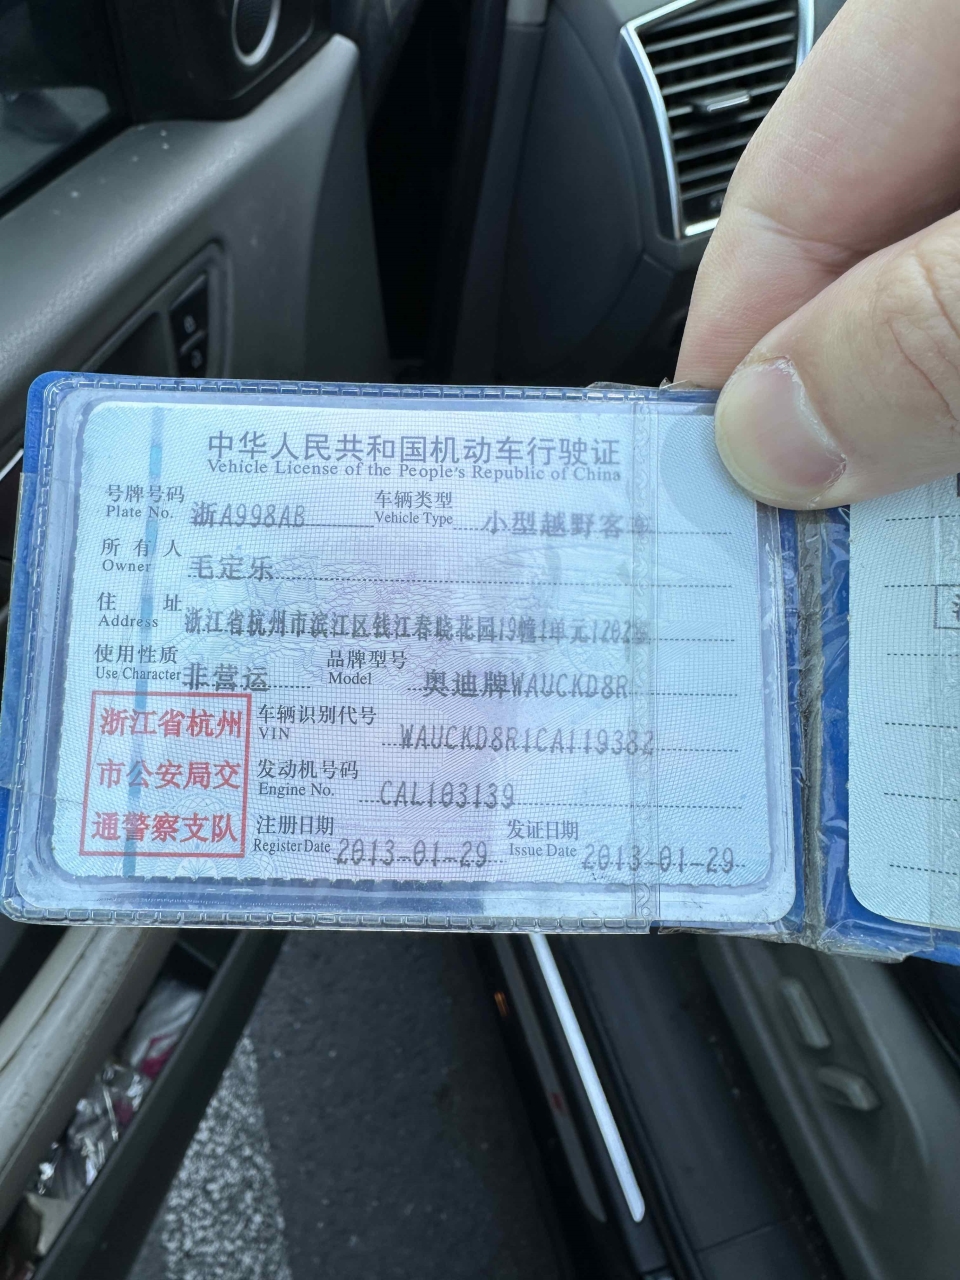 中华人民共和国机动车行驶证
Vehicle License of the People's Republic of China
号牌号码 浙A998AB 车辆类型 小型越野客车
Plate No. Vehicle Type
所有人 毛定乐
Owner
住址 浙江省杭州市滨江区钱江春晓花园19幢1单元1202室
Address
使用性质 非营运 品牌型号 奥迪牌WAUCKD8R
Use Character Model
浙江省杭州
市公安局交
通警察支队
车辆识别代号 WAUCKD8R1CA119382
VIN
发动机号码 CAL103139
Engine No.
注册日期 2013-01-29 发证日期 2013-01-29
Register Date Issue Date